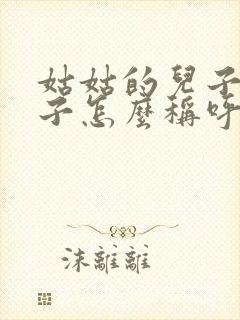 姑姑的兒子
子怎麼稱呼
沫離離